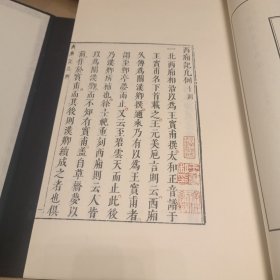 西廂記凡例十則
一北西廂相沿以爲王實甫撰太和正音譜于
王實甫名下首載之王元美卮言則云西廂
久傳爲關漢卿撰邇來乃有以爲王實甫者
謂至郵亭夢而止又云至碧雲天而止此後
乃漢卿所補也徐士範重刻西廂則云人皆
以爲關漢卿而不知有實甫蓋自草橋夢以
前作於實甫而其後則漢卿續成之者也俱